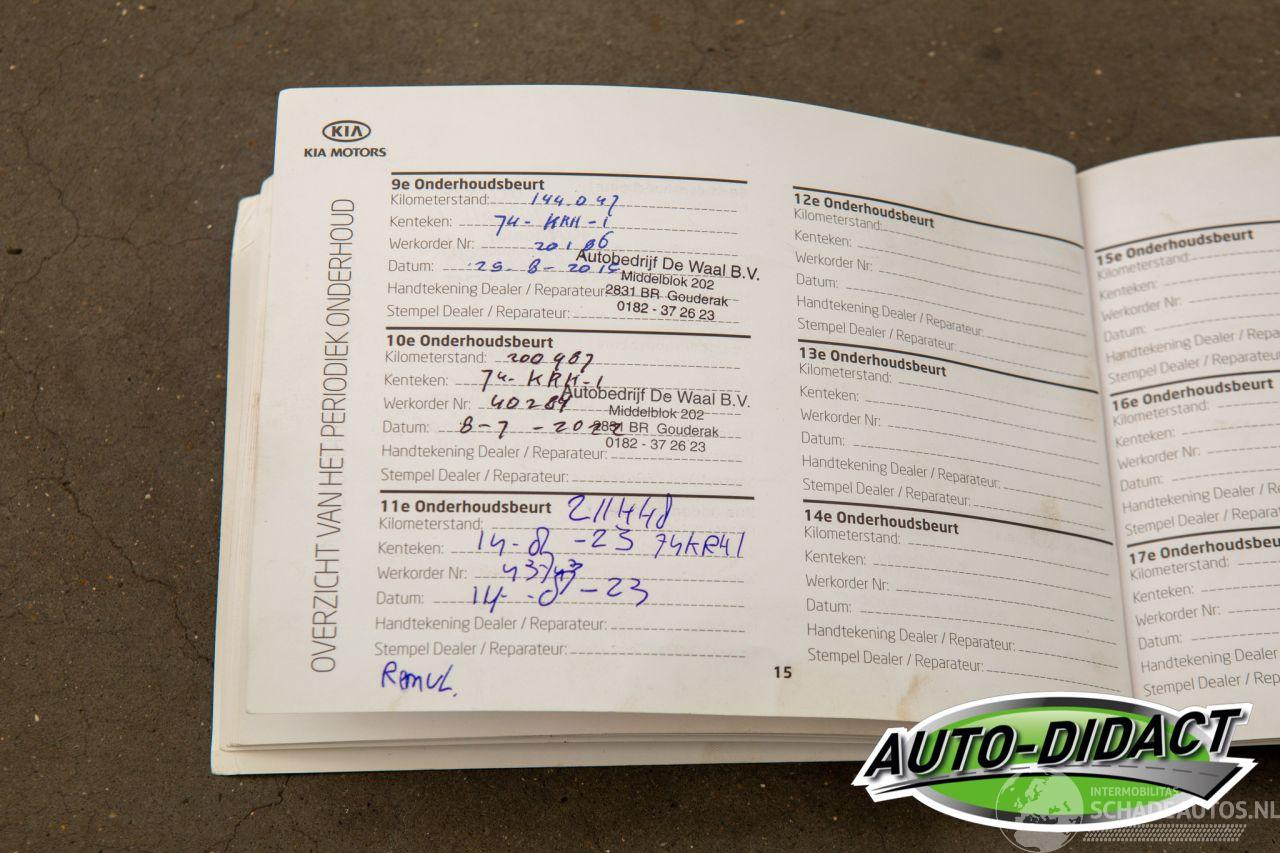 KIA
KIA MOTORS
OVERZICHT VAN HET PERIODIEK ONDERHOUD
9e Onderhoudsbeurt
Kilometerstand: 144.047
Kenteken: 74-KRH-1
Werkorder Nr:
Datum:
Autobedrijf De Waal B.V.
Middelblok 202
Handtekening Dealer / Reparateur:
2831 BR Gouderak
0182 - 37 26 23
Stempel Dealer / Reparateur:
10e Onderhoudsbeurt
Kilometerstand: 200987
Kenteken: 74-KRH-1
Autobedrijf De Waal B.V.
Werkorder Nr: 40289
Middelblok 202
Datum: 8-7-2022
2831 BR Gouderak
0182 - 37 26 23
Handtekening Dealer / Reparateur:
Stempel Dealer / Reparateur:
11e Onderhoudsbeurt 211448
Kilometerstand:
Kenteken: 14-8-23 74KRH1
Werkorder Nr:
Datum: 14-8-23
Handtekening Dealer / Reparateur:
Stempel Dealer / Reparateur:
15
12e Onderhoudsbeurt
Kilometerstand:
Kenteken:
Werkorder Nr:
Datum:
Handtekening Dealer / Reparateur:
Stempel Dealer / Reparateur:
13e Onderhoudsbeurt
Kilometerstand:
Kenteken:
Werkorder Nr:
Datum:
Handtekening Dealer / Reparateur:
Stempel Dealer / Reparateur:
14e Onderhoudsbeurt
Kilometerstand:
Kenteken:
Werkorder Nr:
Datum:
Handtekening Dealer / Reparateur:
Stempel Dealer / Reparateur:
15e Onderhoudsbeurt
Kilometerstand:
Kenteken:
Werkorder Nr:
Datum:
Handtekening Dealer / Reparateu
Stempel Dealer / Reparateur
16e Onderhoudsbeurt
Kilometerstand:
Kenteken:
Werkorder Nr:
Datum:
Handtekening Dealer / R
Stempel Dealer / Repara
17e Onderhoudsbeu
Kilometerstand:
Kenteken:
Werkorder Nr:
Datum:
Handtekening Dealer
Stempel Dealer / Rep
AUTO-DIDACT
INTERMOBILITAS
SCHADEAUTOS.NL